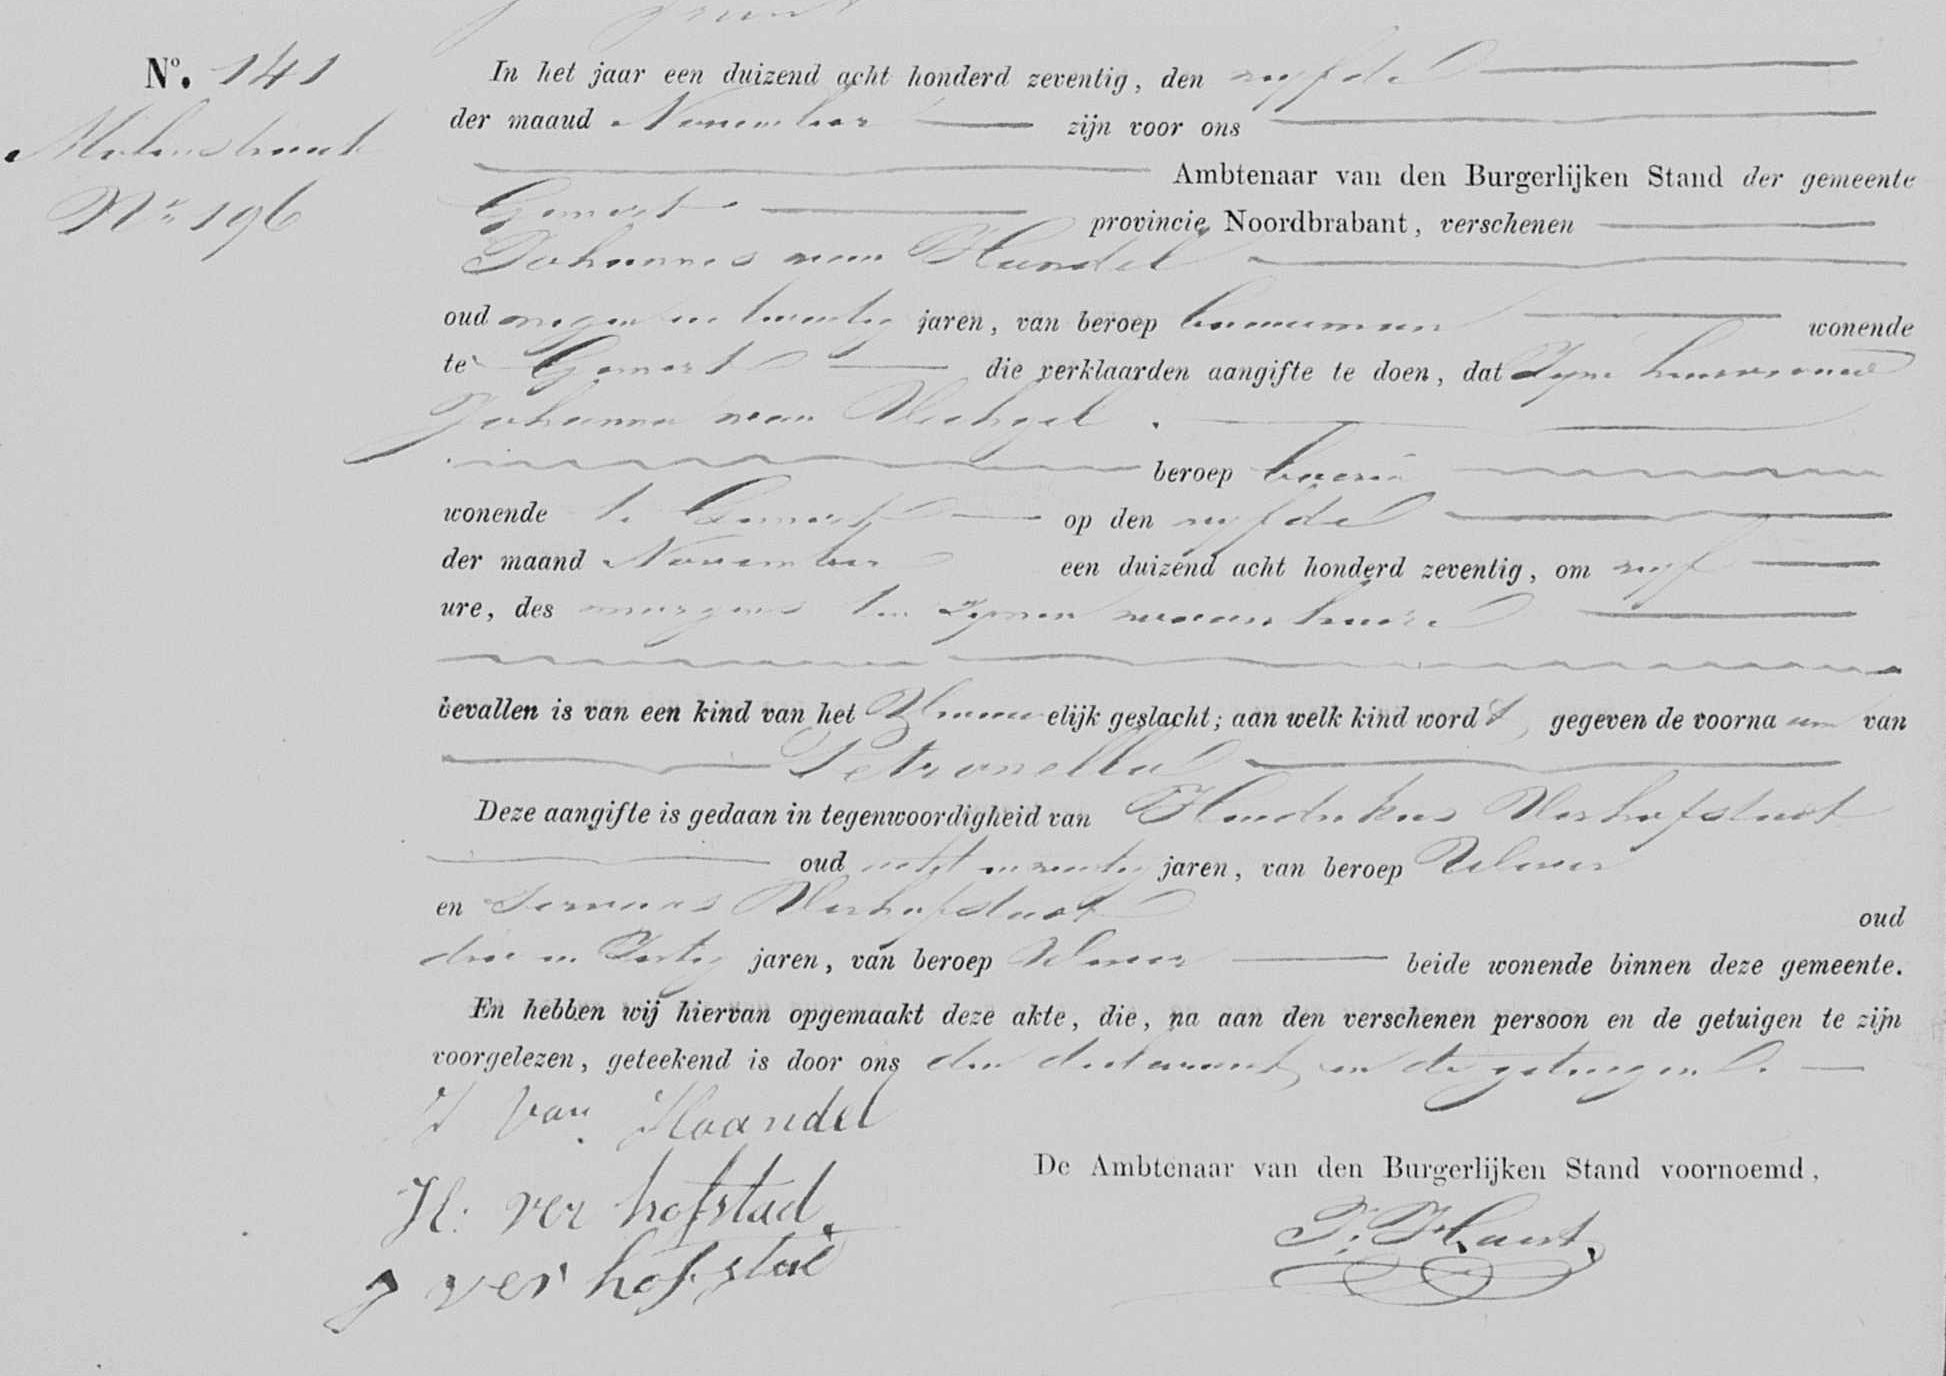 No. 141
In het jaar een duizend acht honderd zeventig, den vyfde
der maand November zijn voor ons
Molenstraat
Ambtenaar van den Burgerlijken Stand der gemeente
Nr 196
Gemert provincie Noordbrabant, verschenen
Johannes van Handel
oud negen en twintig jaren, van beroep bouwman wonende
te Gemert die verklaarden aangifte te doen, dat Zyne huisvrouw
Johanna van Veghel
beroep boerin
wonende te Gemert op den vyfde
der maand November een duizend acht honderd zeventig, om vyf
ure, des morgens ten zynen woonhuize
bevallen is van een kind van het Vrouwelijk geslacht; aan welk kind wordt gegeven de voornaam van
Petronella
Deze aangifte is gedaan in tegenwoordigheid van Hendrikus Verhofstadt
oud acht en jaren, van beroep Wever
en Servaas Verhofstadt oud
drie en jaren, van beroep Wever beide wonende binnen deze gemeente.
En hebben wij hiervan opgemaakt deze akte, die, na aan den verschenen persoon en de getuigen te zijn
voorgelezen, geteekend is door ons den declarant en de getuigen.
J Van Haandel
De Ambtenaar van den Burgerlijken Stand voornoemd,
H: ver hofstad
ver hofstad